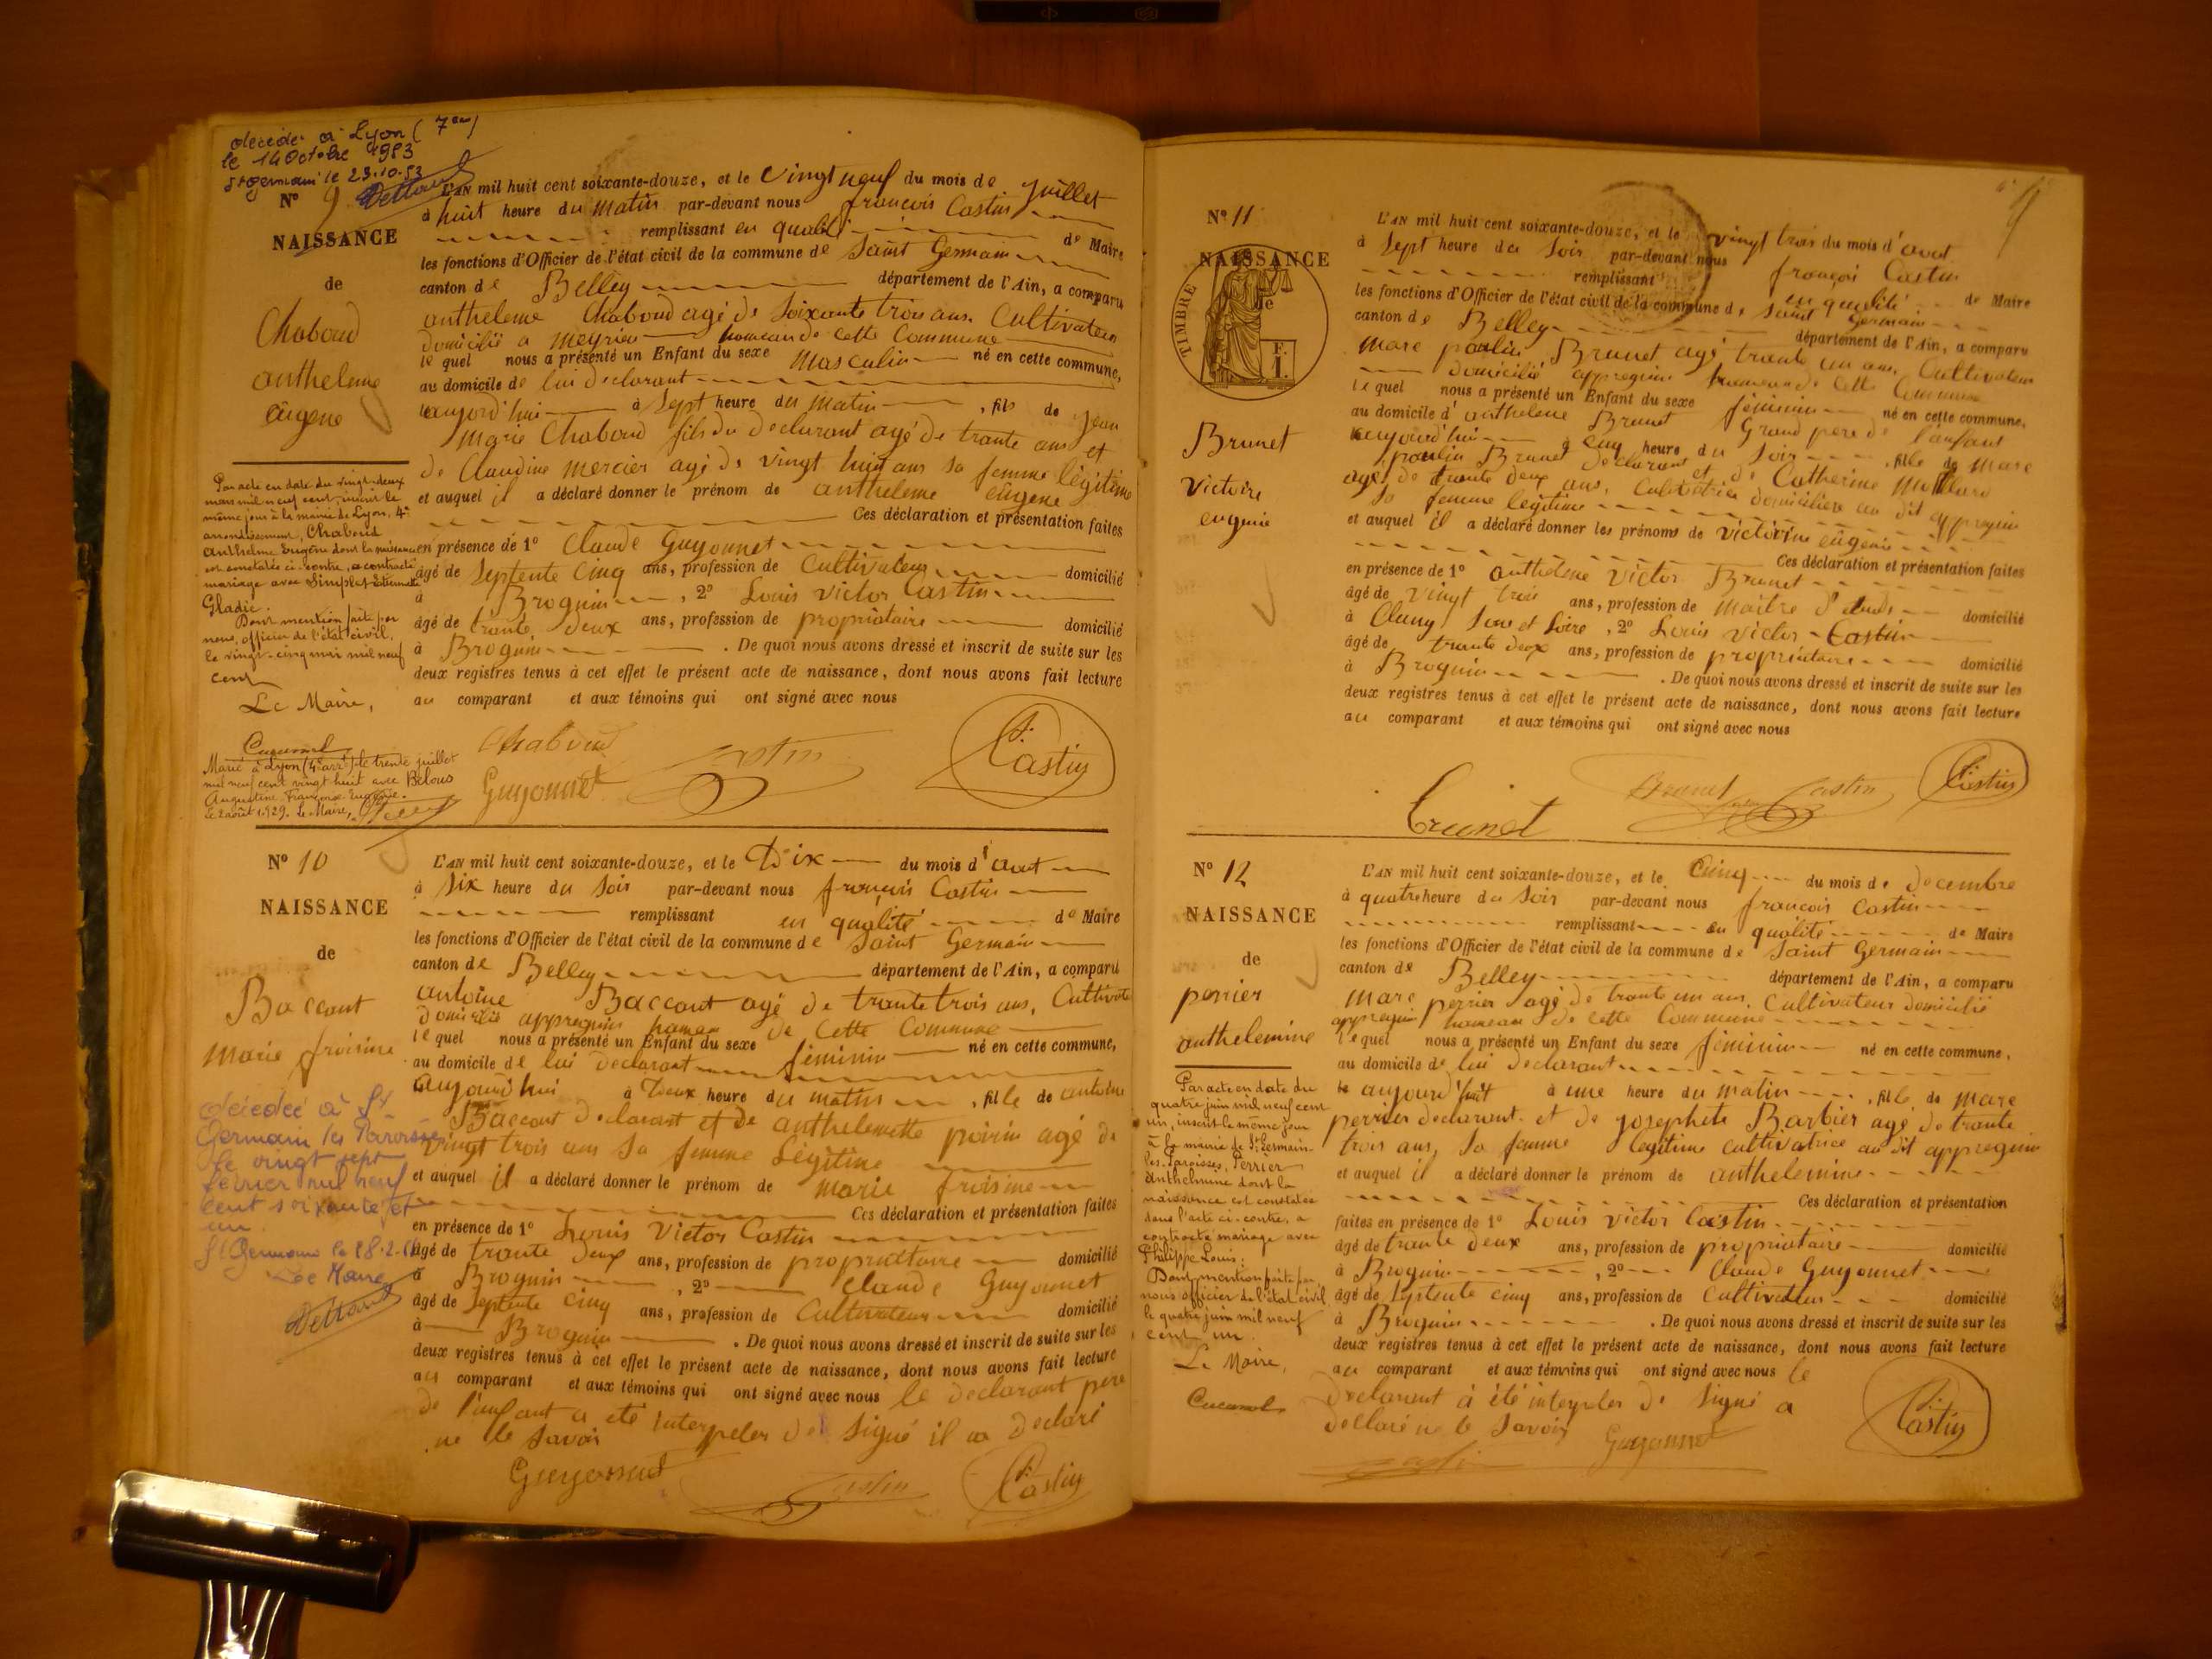 decédé à Lyon (7em)
le 14 Octobre 1953
St germain le 23.10.53
N° 9
NAISSANCE
de
Chaboud
anthelme
eûgene
Par acte en date du vingt-deux
mars mil neuf cent, inscrit le
même jour à la mairie de Lyon, 4e
arrondissement, Chaboud
Anthelme Eugène dont la naissance
est constatée ci-contre, a contracté
mariage avec Simplex Etiennette
Gladie.
Dont mention faite par
nous, officier de l'état civil,
le vingt-cinq mai mil neuf
cent
Le Maire,
Cucunel
Marié à Lyon (4e arrt) le trente juillet
mil neuf cent vingt huit avec Belous
Augustine Françoise Eugénie.
Le 2 août 1929. Le Maire,
L'AN mil huit cent soixante-douze, et le vingt neuf du mois de Juillet
à huit heure du matin par-devant nous françois Castin
remplissant en qualité de Maire
les fonctions d'Officier de l'état civil de la commune de Saint Germain
canton de Belley département de l'Ain, a comparu
antheleme Chaboud agé de soixante trois ans. Cultivateur
domicilié a meyrieu hameau de cette Commune
le quel nous a présenté un Enfant du sexe masculin né en cette commune,
au domicile de lui declarant
aujord'hui à Sept heure du matin , fils de jean
marie Chaboud fils du declarant agé de trante ans et
de Claudine mercier agé de vingt huit ans sa femme légitime
et auquel il a déclaré donner le prénom de antheleme eûgene
Ces déclaration et présentation faites
en présence de 1° Claude Guyonnet
âgé de septente cinq ans, profession de Cultivateur domicilié
à Brognin , 2° Louis victor Castin
âgé de trante deux ans, profession de propriataire domicilié
à Brognin . De quoi nous avons dressé et inscrit de suite sur les
deux registres tenus à cet effet le présent acte de naissance, dont nous avons fait lecture
au comparant et aux témoins qui ont signé avec nous
Chaboud
Guyonnet
Castin
Castin
N° 10
NAISSANCE
de
Baccont
marie froisine
décédée à St
Germain les Paroisses
le vingt sept
février mil neuf
cent soixante et
un
St Germain le 28.2.61
Le Maire
L'AN mil huit cent soixante-douze, et le Dix du mois d'aout
à Six heure du Soir par-devant nous françois Castin
remplissant en qualité de Maire
les fonctions d'Officier de l'état civil de la commune de Saint Germain
canton de Belley département de l'Ain, a comparu
antoine Baccont agé de trante trois ans, Cultivate
domicilié appregnin hameau de cette Commune
le quel nous a présenté un Enfant du sexe féminin né en cette commune,
au domicile de lui declarant
aujourd'hui à Deux heure du matin , fille de antoine
Baccont declarant et de anthelemette poirin agé de
vingt trois ans sa femme Légitime
et auquel il a déclaré donner le prénom de marie froisine
Ces déclaration et présentation faites
en présence de 1° Louis Victor Castin
âgé de trante deux ans, profession de propriataire domicilié
à Brognin , 2° Claude Guyonnet
âgé de Septente cinq ans, profession de Cultivateur domicilié
à Brognin . De quoi nous avons dressé et inscrit de suite sur les
deux registres tenus à cet effet le présent acte de naissance, dont nous avons fait lecture
au comparant et aux témoins qui ont signé avec nous le declarant père
de l'anfant a eté interpeler de signé il a declaré
ne le savoir
Guyonnet
Castin
Castin
N° 11
NAISSANCE
de
TIMBRE
F.
1.
Brunet
Victoire
eugenie
L'AN mil huit cent soixante-douze, et le vingt trois du mois d'aout
à Sept heure du Soir par-devant nous françois Castin
remplissant en qualité de Maire
les fonctions d'Officier de l'état civil de la commune de Saint Germain
canton de Belley département de l'Ain, a comparu
marc paulin Brunet agé trante un ans. Cultivateur
domicilié appregnin hameau de cette Commune
le quel nous a présenté un Enfant du sexe féminin né en cette commune,
au domicile d'antheleme Brunet Grand pere de l'anfant
aujourd'hui à cinq heure du soir , fille de marc
paulin Brunet declarant et de Catherine mollard
agé de trante deux ans, Cultivatrice domicilière au dit appregnin
sa femme legitime
et auquel il a déclaré donner les prénoms de victorine eûgenie
Ces déclaration et présentation faites
en présence de 1° anthelme Victor Brunet
âgé de vingt trois ans, profession de maitre d'etudes domicilié
à Cluny Sone et Loire , 2° Louis Victor Castin
âgé de trante deux ans, profession de propriétaire domicilié
à Brognin . De quoi nous avons dressé et inscrit de suite sur les
deux registres tenus à cet effet le présent acte de naissance, dont nous avons fait lecture
au comparant et aux témoins qui ont signé avec nous
Brunet
Brunet
Castin
Castin
N° 12
NAISSANCE
de
perrier
anthelemine
Par acte en date du
quatre juin mil neuf cent
un, inscrit le même jour
à la mairie de St Germain-
les-Paroisses, Perrier
Anthelmine dont la
naissance est constatée
dans l'acte ci-contre, a
contracté mariage avec
Philippe Louis.
Dont mention faite par
nous officier de l'état civil
le quatre juin mil neuf
cent un.
Le Maire,
Cucunel
L'AN mil huit cent soixante-douze, et le Cinq du mois de Decembre
à quatre heure du Soir par-devant nous françois Castin
remplissant en qualité de Maire
les fonctions d'Officier de l'état civil de la commune de Saint Germain
canton de Belley département de l'Ain, a comparu
marc perrier agé de trante un ans, Cultivateur domicilié
appregnin hameau de cette Commune
le quel nous a présenté un Enfant du sexe féminin né en cette commune,
au domicile de lui declarant
le aujourd'huit à une heure du matin , fille de marc
perrier declarant et de josephete Barbier agé de trante
trois ans, sa femme legitime cultivatrice au dit appregnin
et auquel il a déclaré donner le prénom de anthelemine
Ces déclaration et présentation
faites en présence de 1° Louis victor Castin
âgé de trante deux ans, profession de propriataire domicilié
à Brognin , 2° Claude Guyonnet
âgé de septente cinq ans, profession de Cultivateur domicilié
à Brognin . De quoi nous avons dressé et inscrit de suite sur les
deux registres tenus à cet effet le présent acte de naissance, dont nous avons fait lecture
au comparant et aux témoins qui ont signé avec nous le
declarant à été interpeler de signé a
declaré ne le savoir
Guyonnet
Castin
Castin